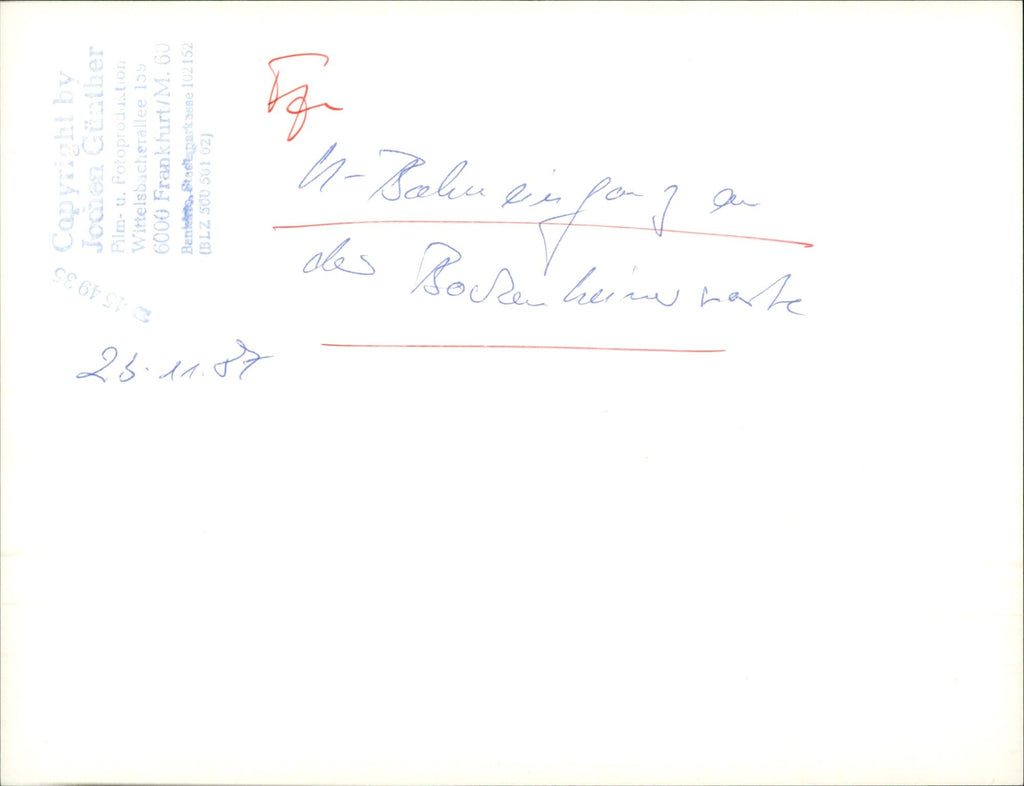 Copyright by
Jochen Günther
Film- u. Fotoproduktion
Wittelsbacherallee 159
6000 Frankfurt/M. 60
Stadtsparkasse 102152
(BLZ 500 501 02)
454935
Ffm
U-Bahneingang an
der Bockenheimer warte
23.11.87